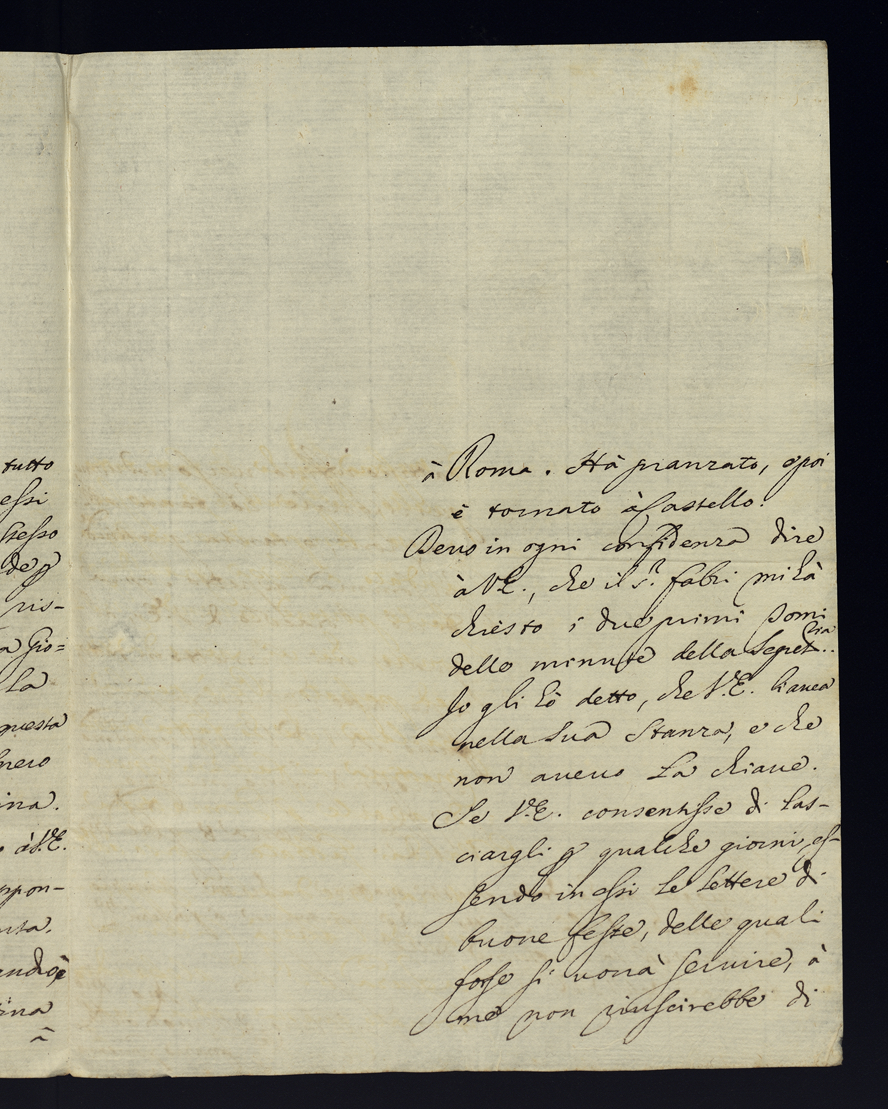 tutto
essi
stesso
de p
ris-
a Gio=
La
questa
nero
ina.
à V.E.
ppon-
nta.
andoè
ina
à
à Roma. Hà pranzato, e poi
è tornato à Castello.
Devo in ogni confidenza dire
à V.E., che il S.r Fabri mi hà
chiesto i due primi Tomi
delle minute della Segret.ria
Io gli hò detto, che V.E. li avea
nella sua Stanza, e che
non avevo La chiave.
Se V.E. consentisse di las-
ciargli p qualche giorni, es-
sendo in essi Le Lettere di
buone feste, delle quali
forse si vorrà servire, à
me non riuscirebbe di